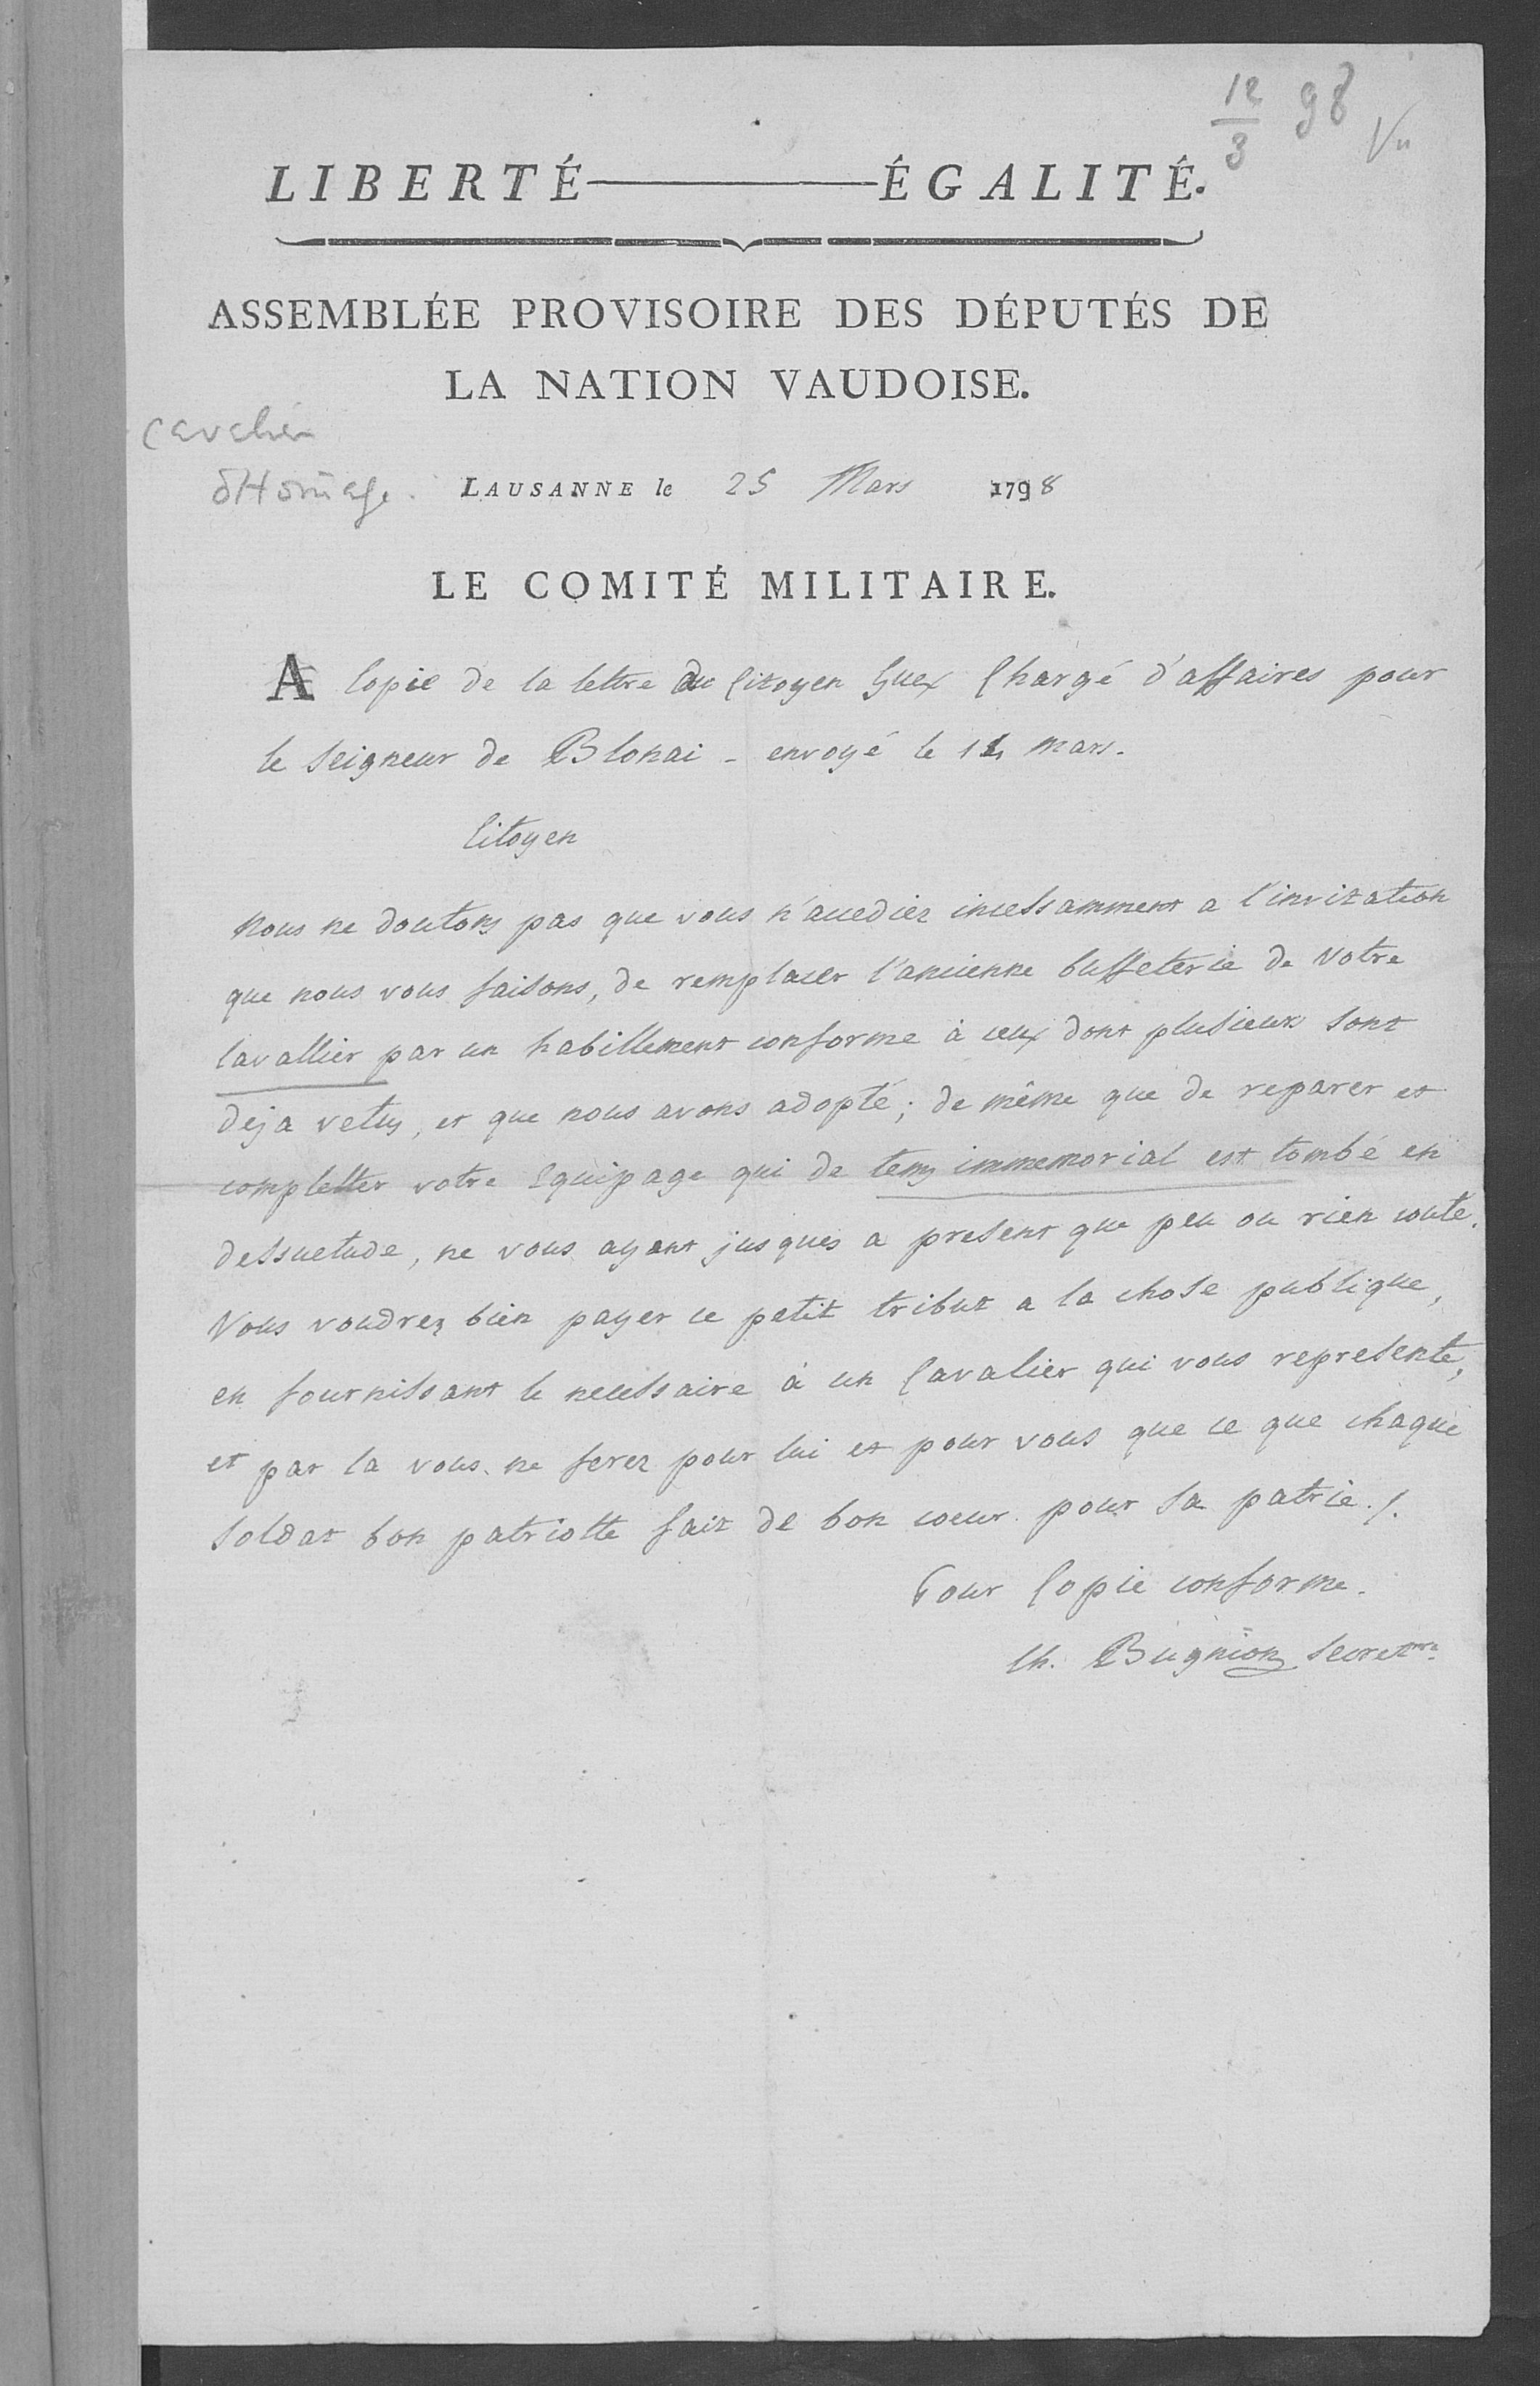 12/3 98 Vu
LIBERTÉ ÉGALITÉ.
ASSEMBLÉE PROVISOIRE DES DÉPUTÉS DE
LA NATION VAUDOISE.
cavalier
d'Homage.
LAUSANNE le 25 Mars 1798
LE COMITÉ MILITAIRE.
A Copie de la lettre du Citoyen Guex Chargé d'affaires pour
le Seigneur de Blonai - envoyé le mars.
Citoyen
Nous ne doutons pas que vous n'accediez incessamment a l'invitation
que nous vous faisons, de remplacer l'ancienne buffeterie de Votre
Cavallier par un habillement conforme à ceux dont plusieurs sont
deja vetus, et que nous avons adopté; de même que de reparer et
completter votre Equipage qui de tems immemorial est tombé en
dessuetude, ne vous ayant jusques a present que peu ou rien couté.
Vous voudrez bien payer ce petit tribut a la chose publique,
en fournissant le necessaire à un Cavalier qui vous represente,
et par la vous ne ferez pour lui et pour vous que ce que chaque
Soldat bon patriotte fait de bon coeur pour sa patrie./.
Pour Copie conforme.
Ch. Bugnion Secretre.